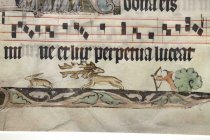 dona eis
mi ne et lux perpetua luceat